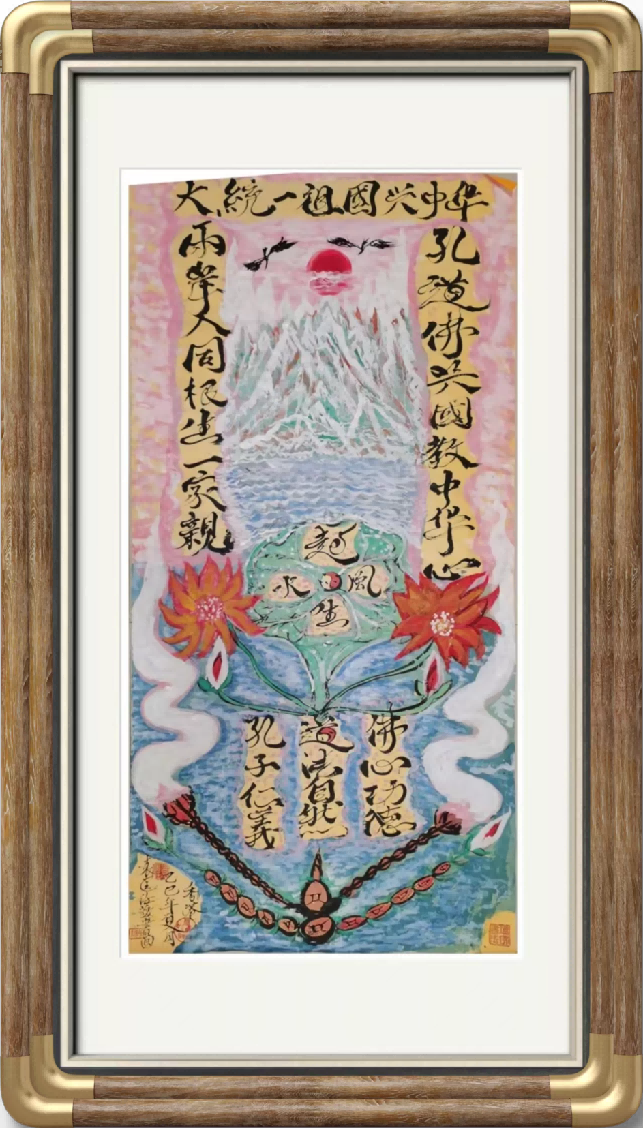 大統一祖國兴中华
孔道佛兴國教中华心
兩岸人同根生一家親
起
水 風
生
佛心功德
道法自然
孔子仁義
乙巳年夏月